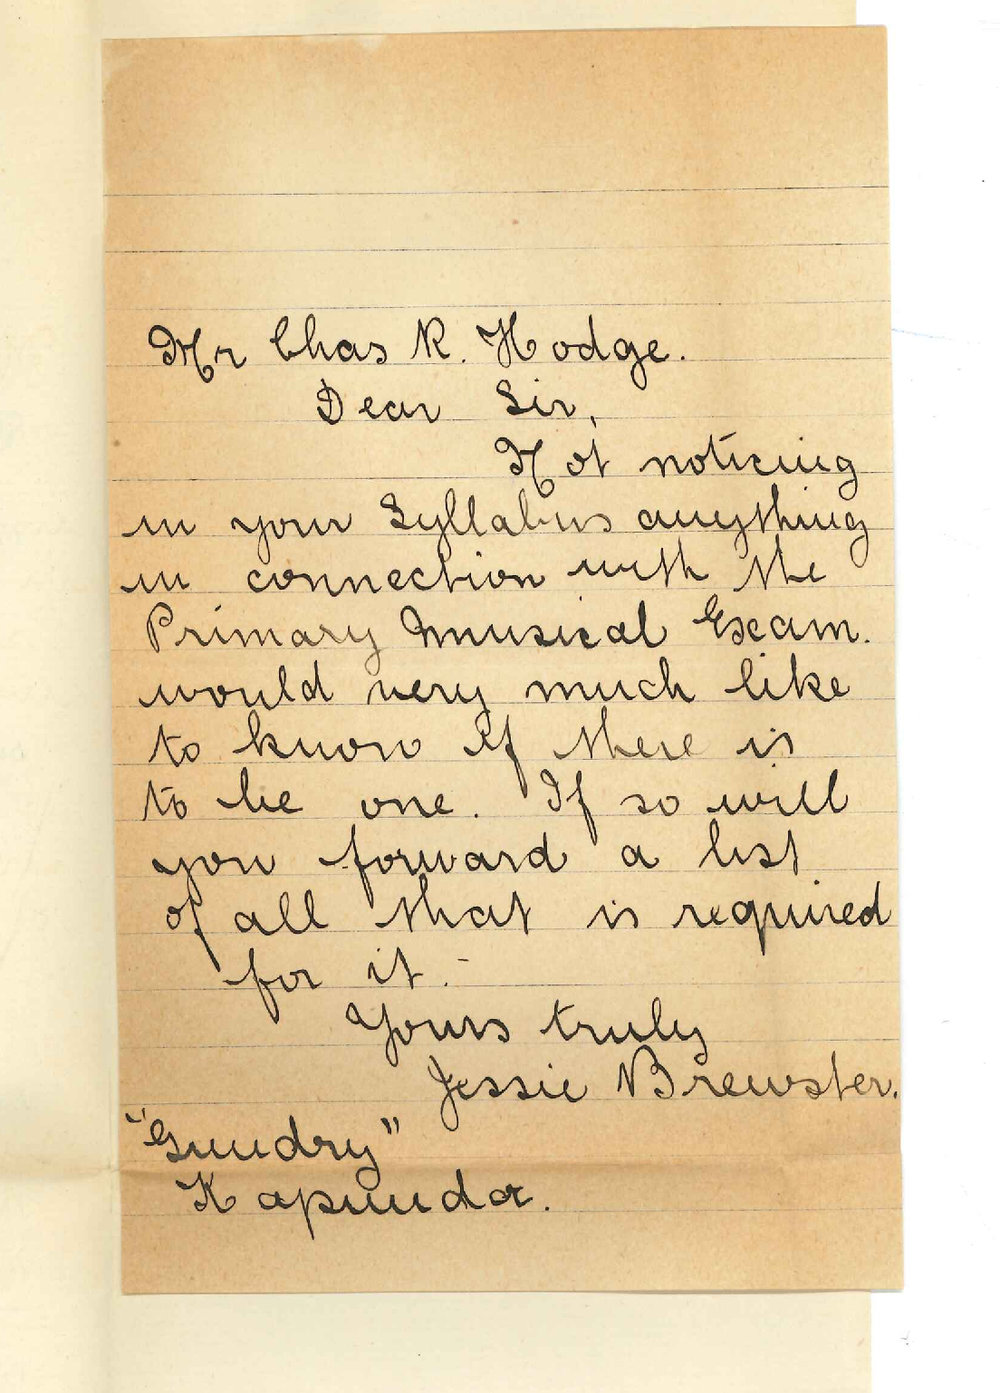 Mr Chas R. Hodge.
Dear Sir,
Not noticing
in your Syllabus anything
in connection with the
Primary Musical Exam.
would very much like
to know if there is
to be one. If so will
you forward a list
of all that is required
for it. -
Yours truly
Jessie Brewster.
"Gundry"
Kapunda.